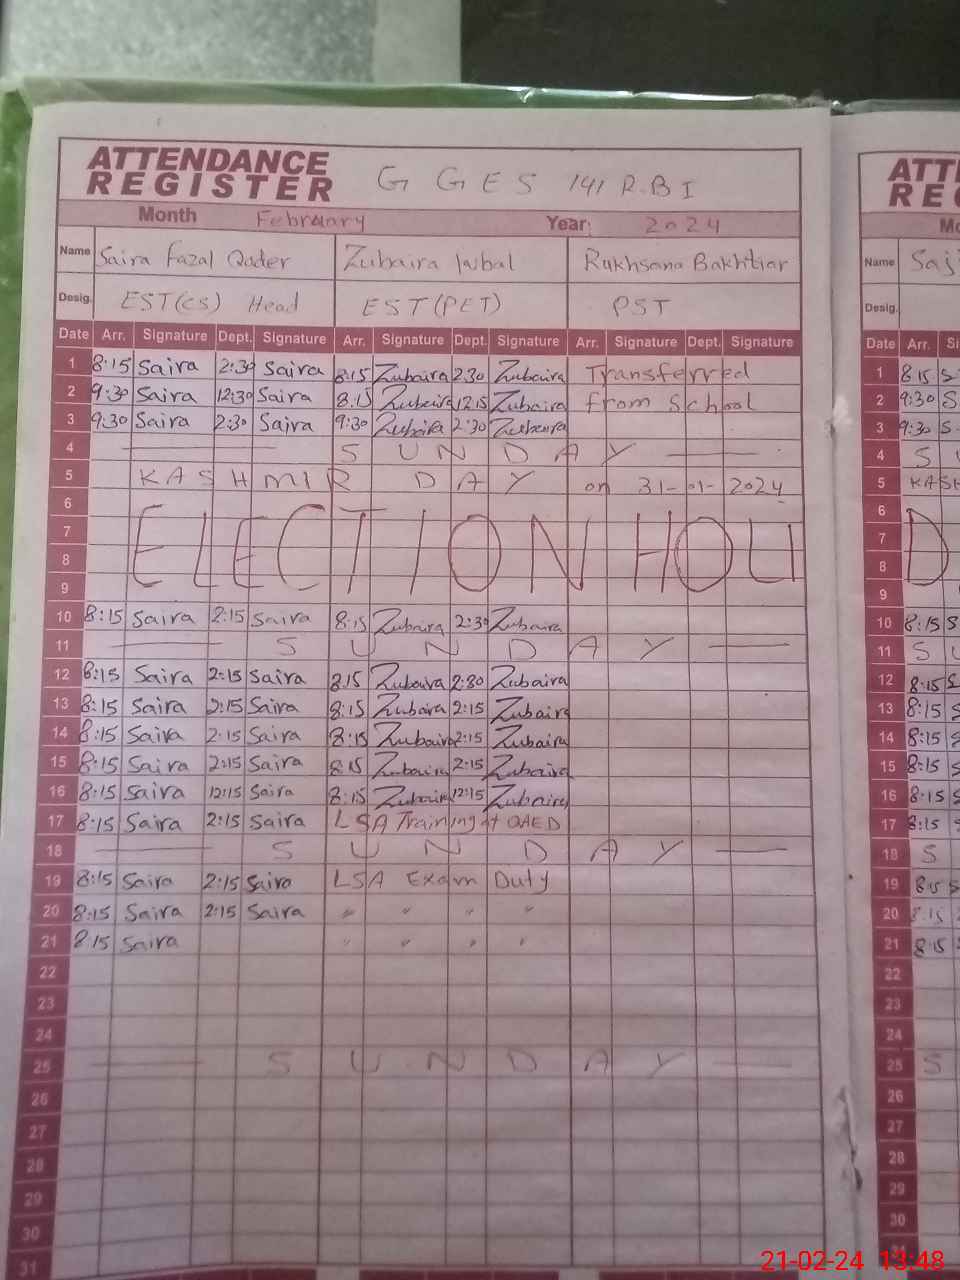 ATTENDANCE REGISTER G GES 141 R.B I
Month February Year: 2024
Name Saira Fazal Qader Zubaira Iqbal Rukhsana Bakhtiar
Desig. EST(CS) Head EST(PET) PST
Date Arr. Signature Dept. Signature Arr. Signature Dept. Signature Arr. Signature Dept. Signature
1 8:15 Saira 2:30 Saira 8:15 Zubaira 2:30 Zubaira Transferred
2 9:30 Saira 12:30 Saira 8:15 Zubaira 12:15 Zubaira from School
3 9:30 Saira 2:30 Saira 9:30 Zubaira 2:30 Zubaira
4 — S U N D A Y —
5 KASHMIR DAY on 31-01-2024
6
7 ELECTION HOLI
8
9
10 8:15 Saira 2:15 Saira 8:15 Zubaira 2:30 Zubaira
11 — S U N D A Y —
12 8:15 Saira 2:15 Saira 8:15 Zubaira 2:30 Zubaira
13 8:15 Saira 2:15 Saira 8:15 Zubaira 2:15 Zubaira
14 8:15 Saira 2:15 Saira 8:15 Zubaira 2:15 Zubaira
15 8:15 Saira 2:15 Saira 8:15 Zubaira 2:15 Zubaira
16 8:15 Saira 12:15 Saira 8:15 Zubaira 12:15 Zubaira
17 8:15 Saira 2:15 Saira LSA Training at QAED
18 — S U N D A Y —
19 8:15 Saira 2:15 Saira LSA Exam Duty
20 8:15 Saira 2:15 Saira " " " "
21 8:15 Saira " " " "
22
23
24
25 — S U N D A Y —
26
27
28
29
30
31
Name Saj
Desig.
Date Arr.
1 8:15 S
2 9:30 S
3 9:30 S
4 S U
5 KASH
6
7 D
8
9
10 8:15 S
11 S U
12 8:15 S
13 8:15 S
14 8:15 S
15 8:15 S
16 8:15 S
17 8:15 S
18 S
19 8:15 S
20 8:15
21 8:15
22
23
24
25 S
26
27
28
29
30
21-02-24 13:48